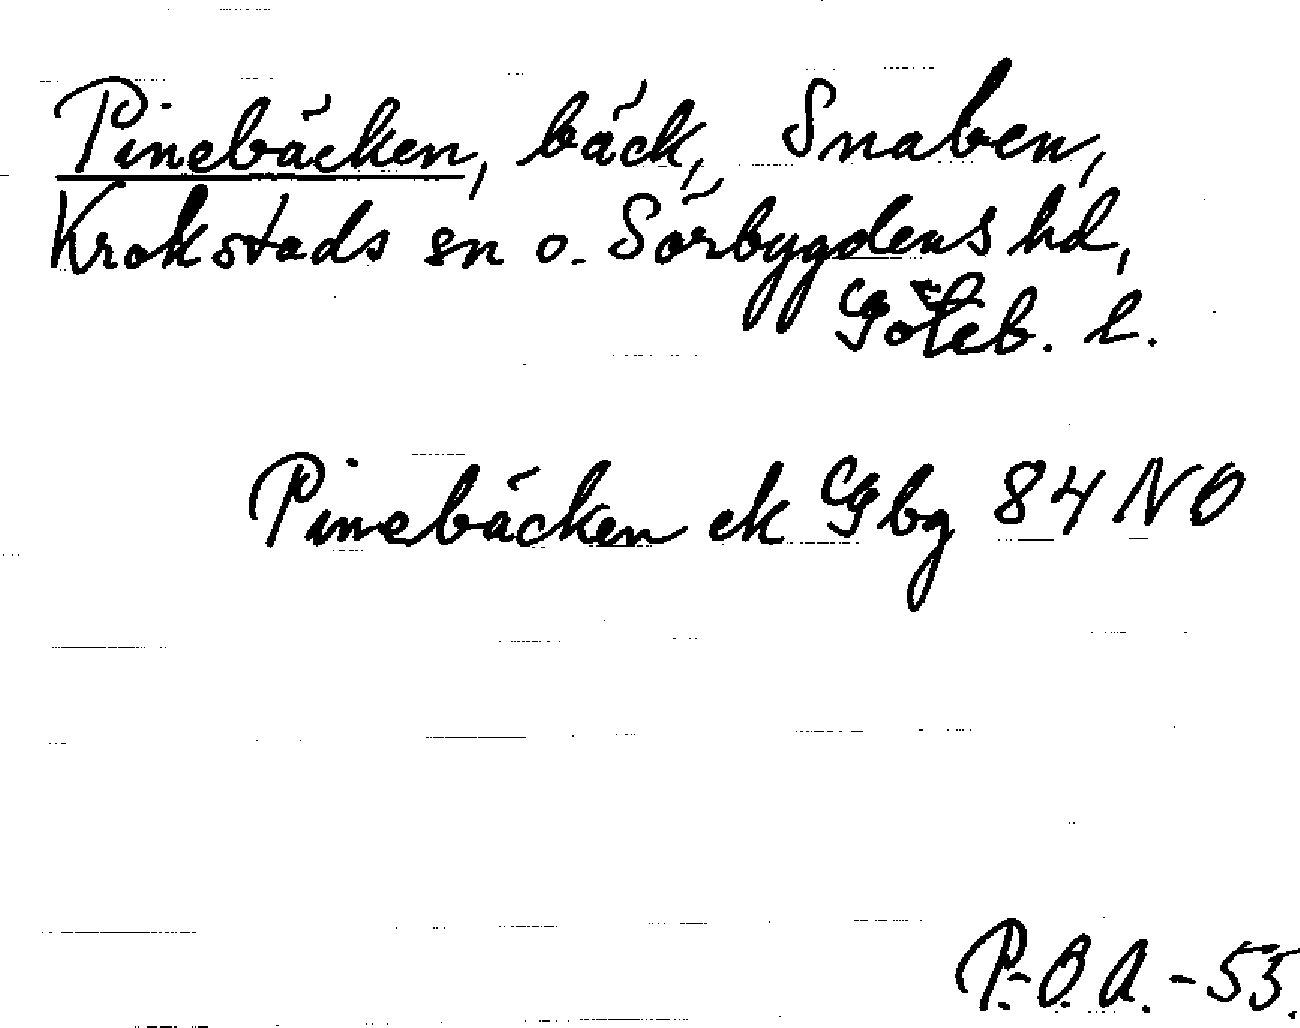 Pinebäcken, bäck, Snaben,
Krokstads sn o. Sörbygdens hd,
Göteb. l.
Pinebäcken ek Gbg 84 NO
P.-O.A.-55.